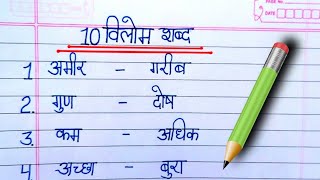 10 विलोम शब्द
1. अमीर - गरीब
2. गुण - दोष
3. कम - अधिक
4. अच्छा - बुरा